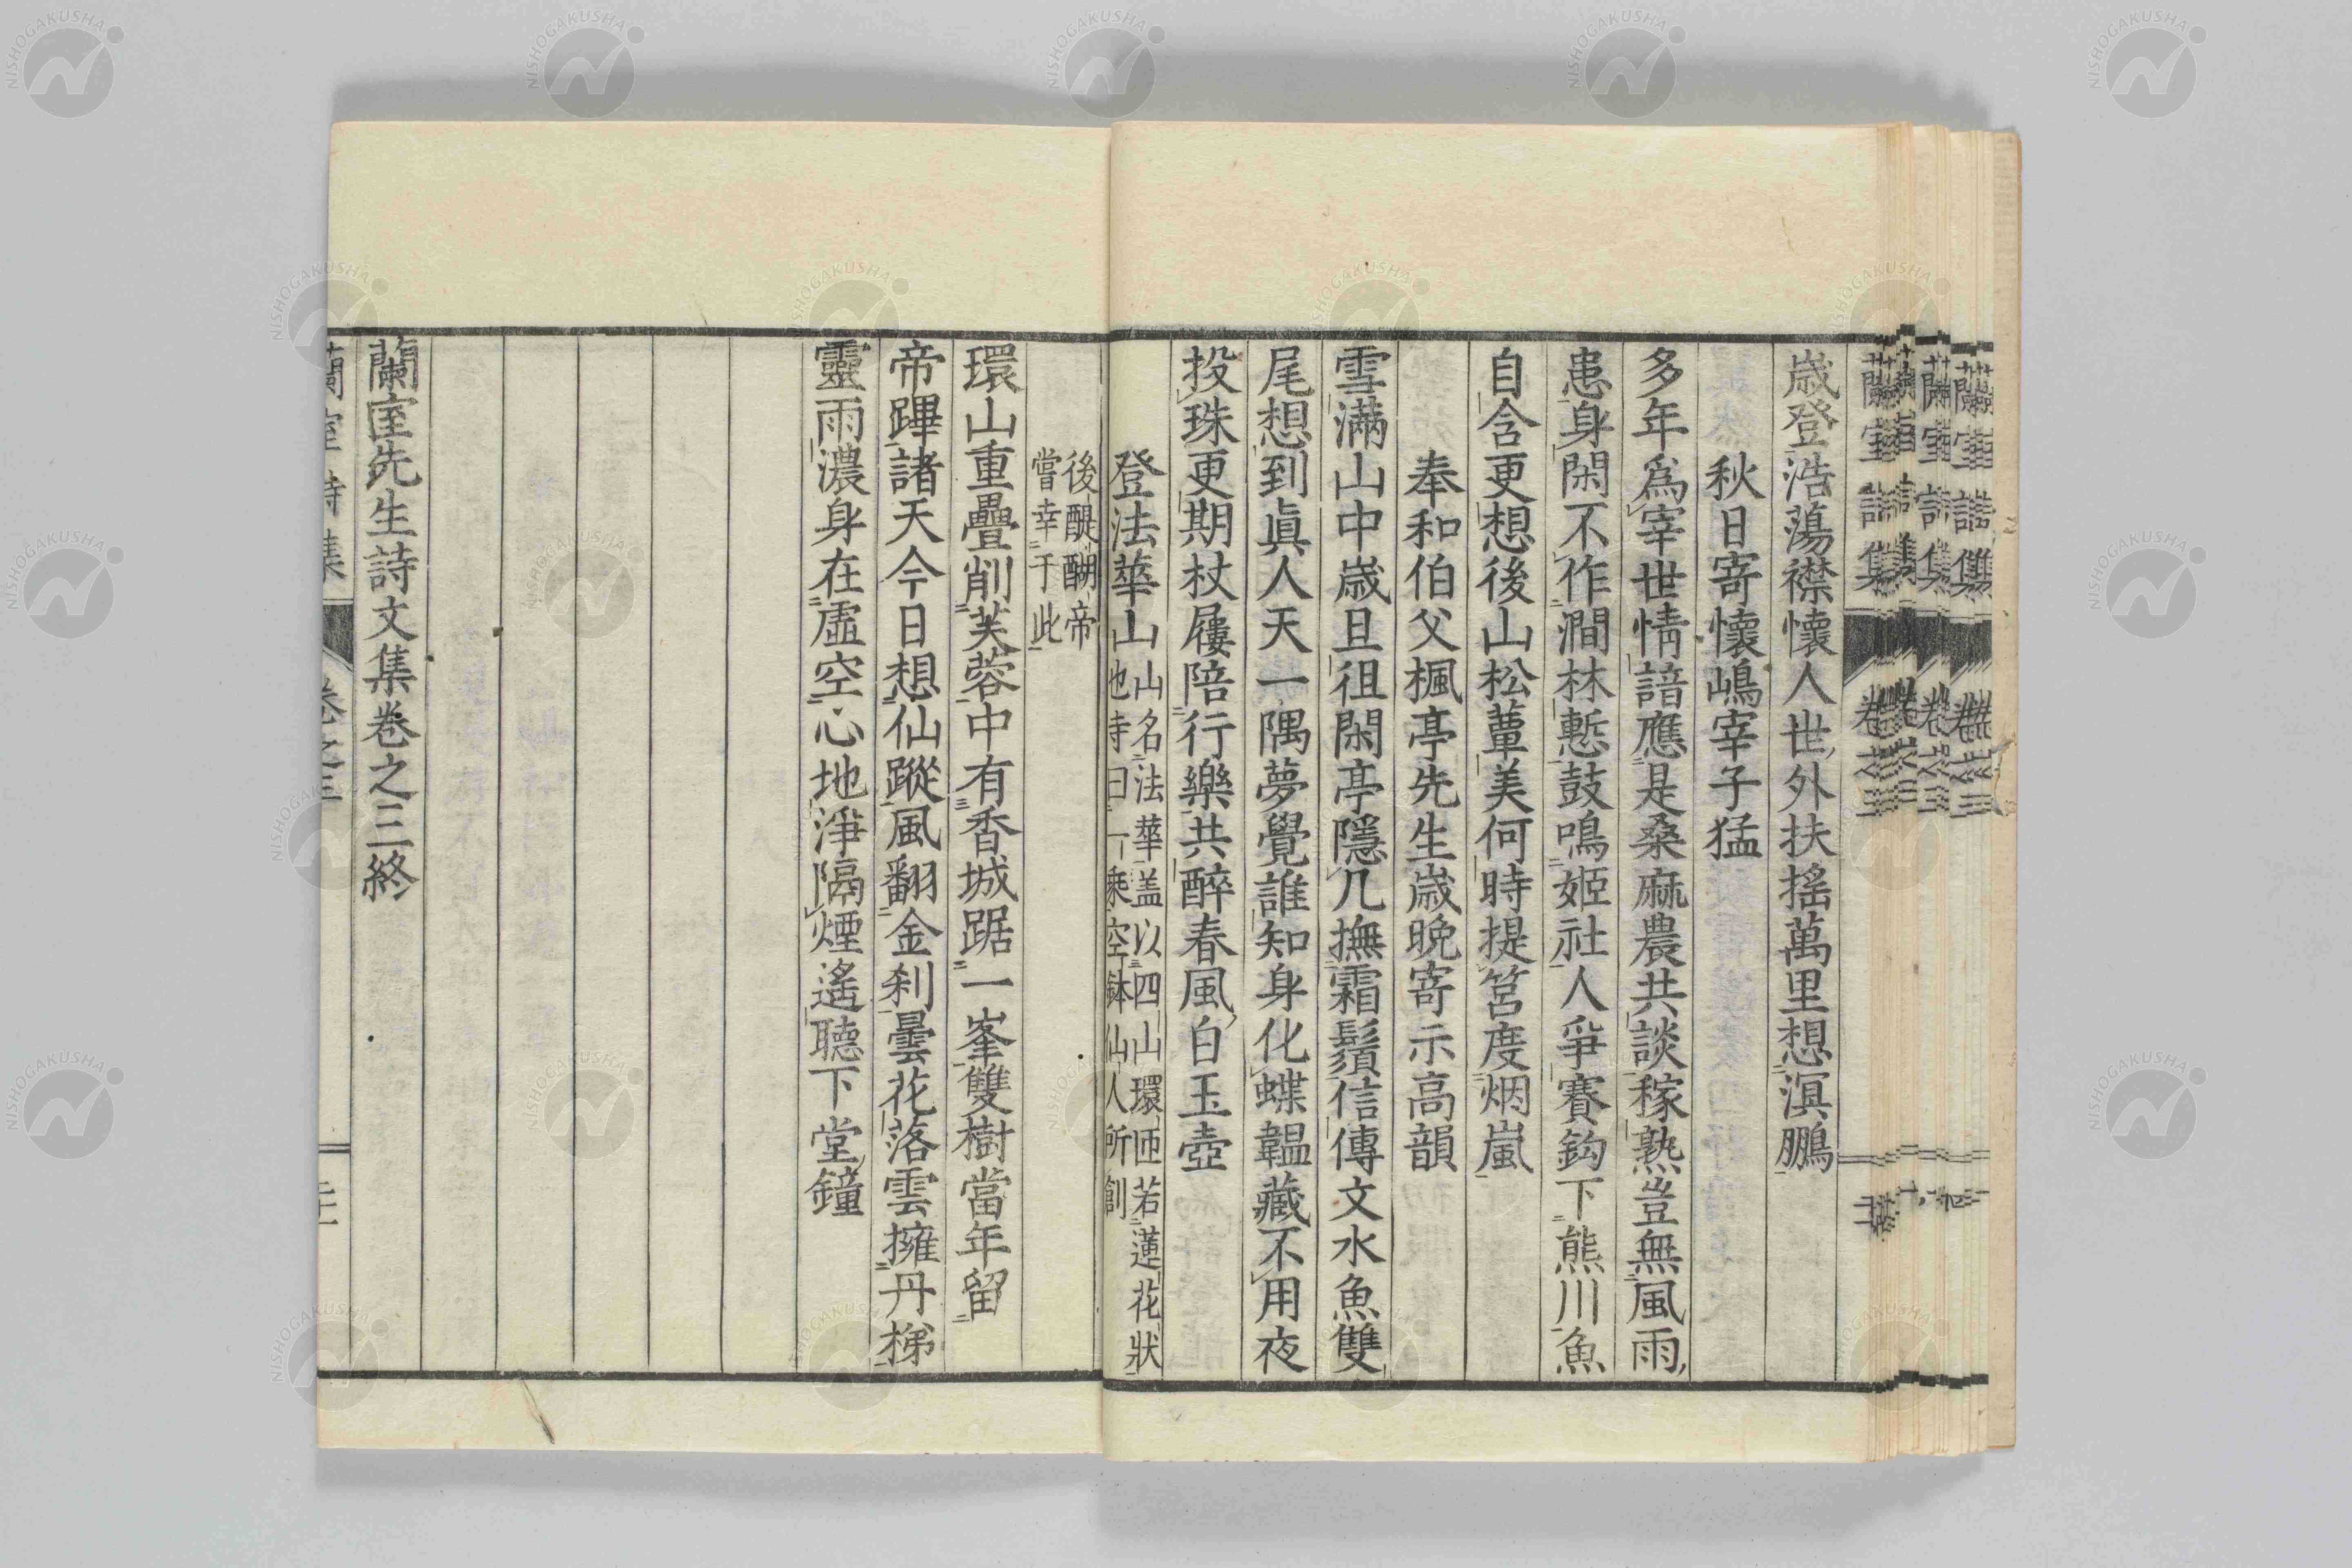 歳登浩蕩襟懷人世外扶搖萬里想溟鵬
秋日寄懷嶋宰子猛
多年爲宰世情諳應是桑麻農共談稼熟豈無風雨
患身閑不作澗林慙鼓鳴姫社人爭賽鈎下熊川魚
自含更想後山松蕈美何時提筥度烟嵐
奉和伯父楓亭先生歳晩寄示高韻
雪滿山中歳且徂閑亭隱几撫霜鬚信傳文水魚雙
尾想到眞人天一隅夢覺誰知身化蝶韞藏不用夜
投珠更期杖屨陪行樂共醉春風白玉壺
登法華山山名法華盖以四山環匝若蓮花狀
也寺曰一乘空鉢仙人所創
後醍醐帝
嘗幸于此
環山重疊削芙蓉中有香城踞一峯雙樹當年留
帝蹕諸天今日想仙蹤風翻金刹曇花落雲擁丹梯
靈雨濃身在虛空心地淨隔煙遙聽下堂鐘
蘭室先生詩文集卷之三終
蘭室詩集 卷之三
NISHOGAKUSHA